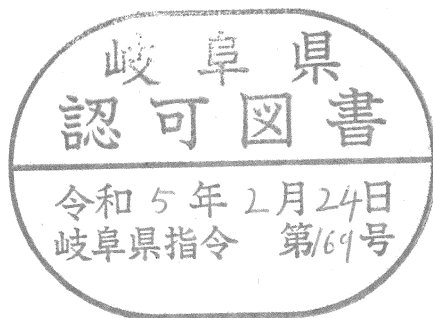 岐阜県
認可図書
令和5年2月24日
岐阜県指令 第169号